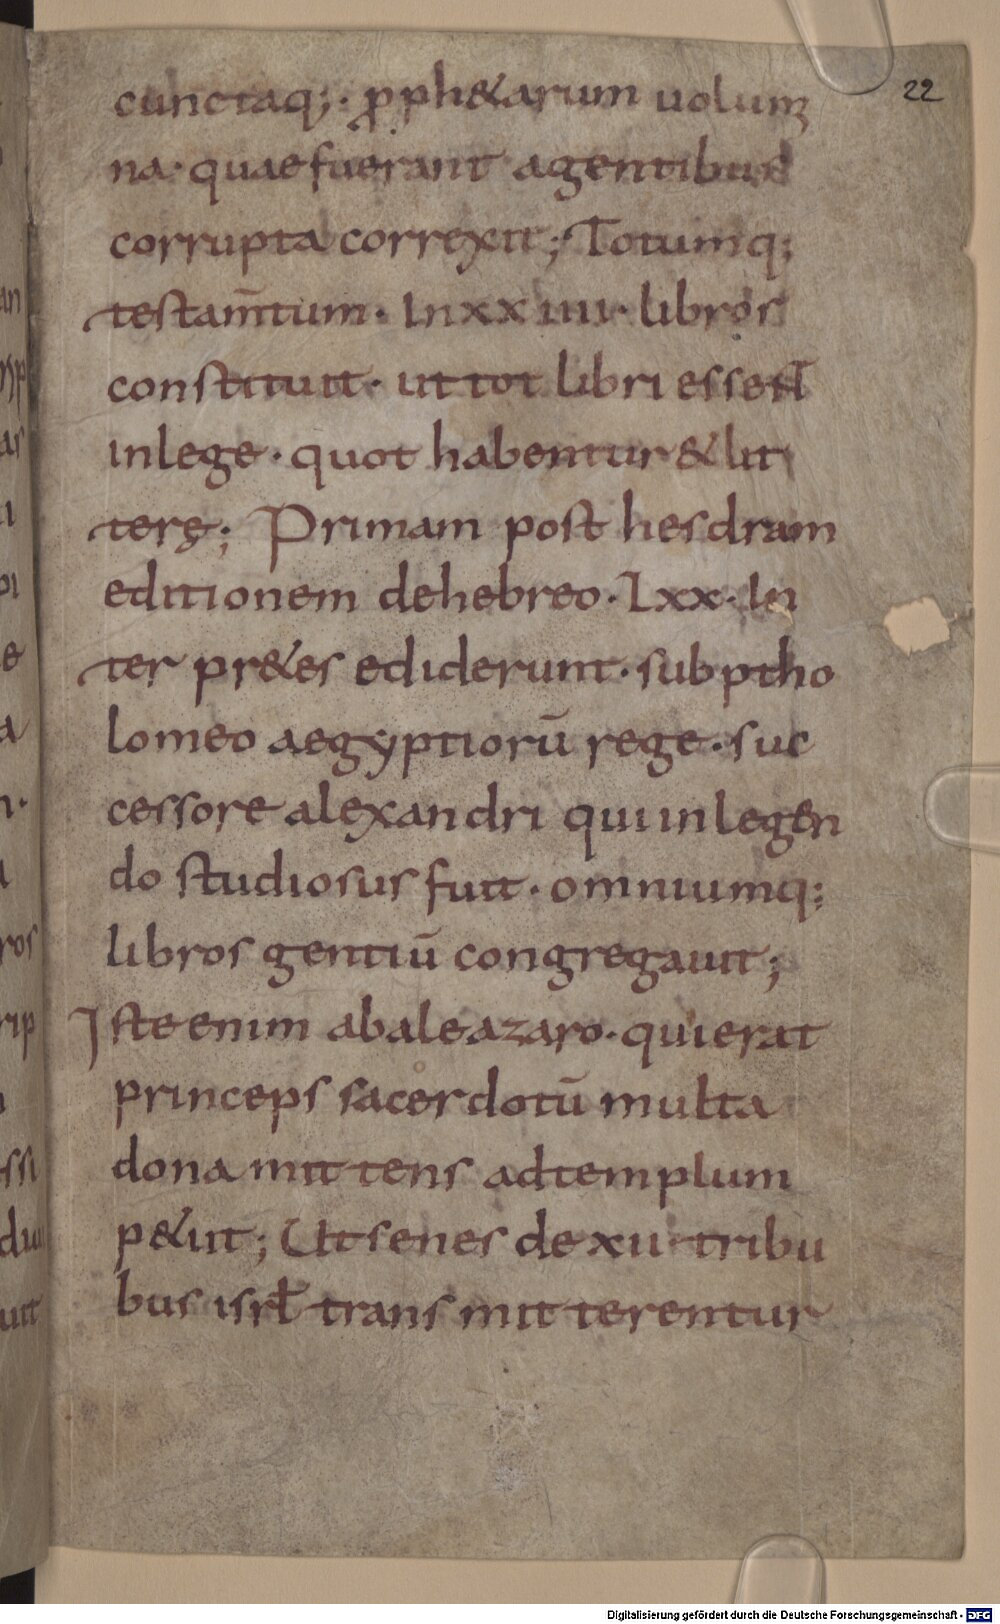 22
cunctaq;· ꝓph&arum uolumi
na· quae fuerant agentibus
corrupta correxit; Totumq;
testam̄tum· Inxxiiii· libros
constituit· ut tot libri essent
inlege· quot habentur & lit
terę; Primam post hesdram
editionem dehebreo· Lxx· In
ter pr&es ediderunt· sub ptho
lomeo aegyptiorū rege· suc
cessore alexandri qui inlegen
do studiosus fuit· omniumq;
libros gentiū congregauit;
Iste enim abaleazaro· quierat
princeps sacerdotū multa
dona mittens adtemplum
p&iit; Ut senes de xii tribu
bus isrł transmitterentur
an
yp
ar
i
pi
e
a
n·
a
ros
rip
i
ssi
dm
uit
Digitalisierung gefördert durch die Deutsche Forschungsgemeinschaft - DFG